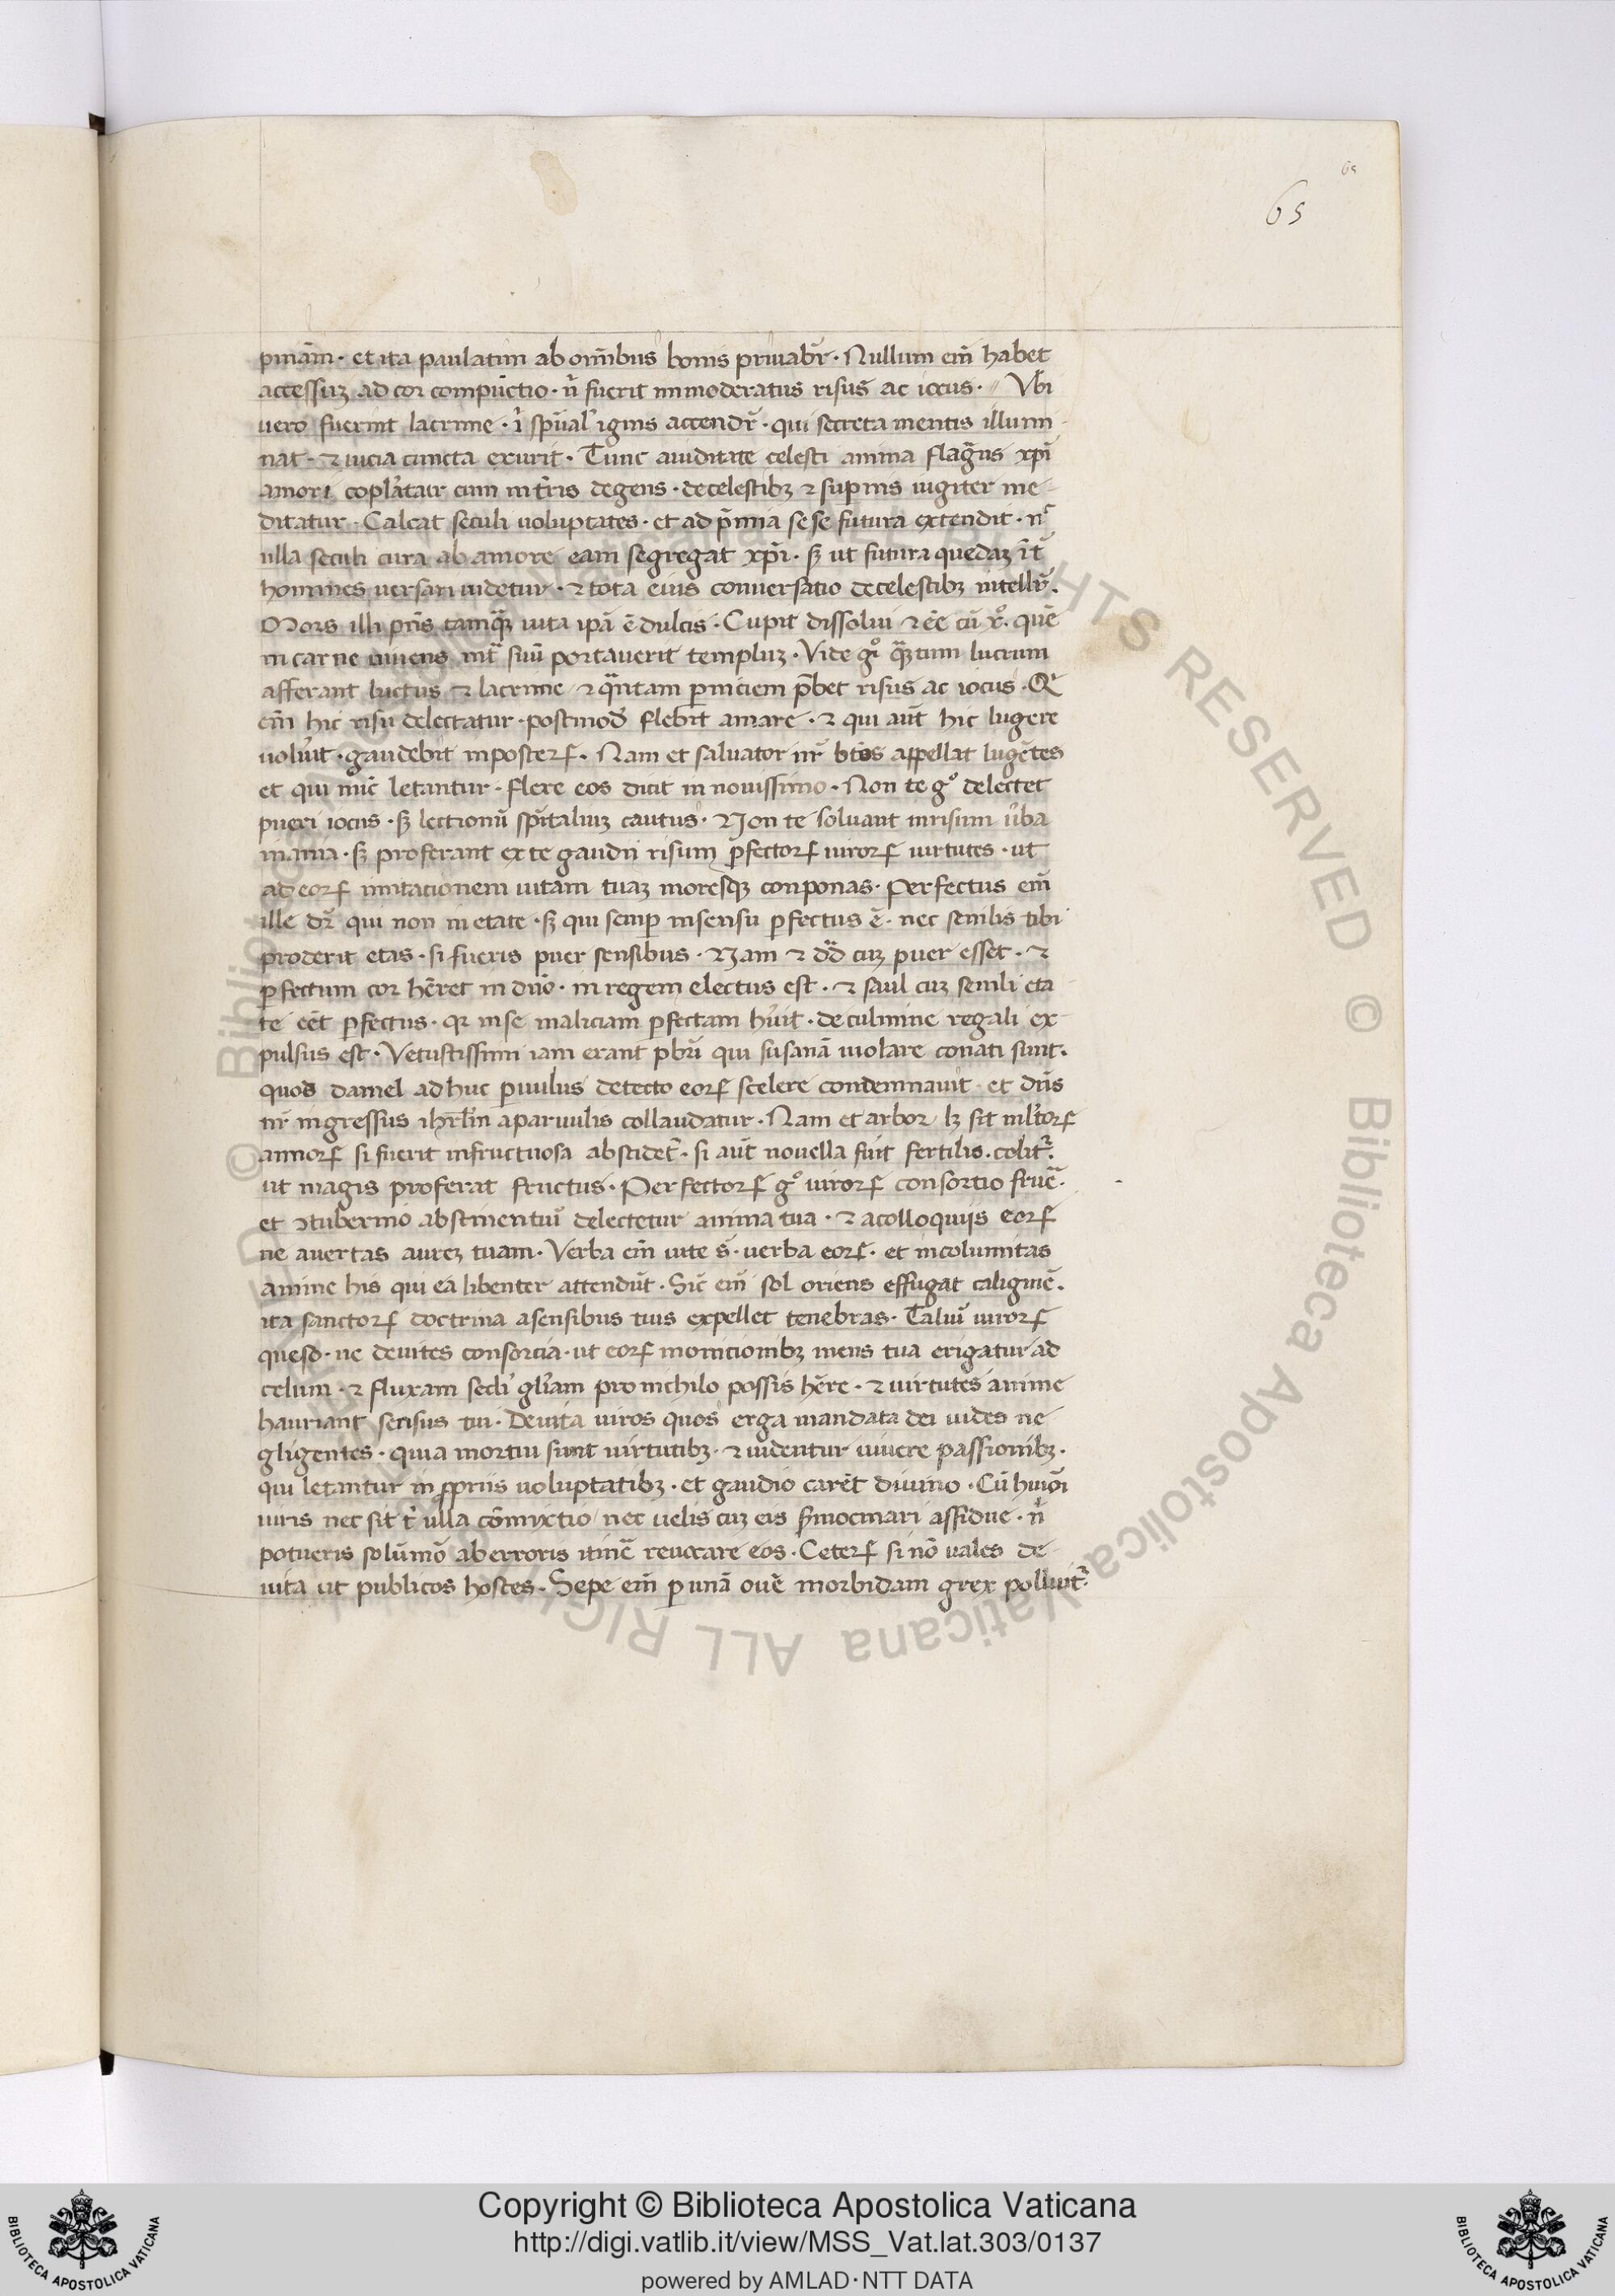 65
65
pinam̃. et ita paulatim ab om̃ibus bonis priuabr̃. Nullum em̃ habet
accessuꝫ ad cor compũctio. ñ fuerit immoderatus risus ac iocus. Vbi
uero fuerint lacrime. i̊ sp̃ual' ignis accendr̃. qui secreta mentis illumi
nat. ⁊ uicia cuncta exurit. Tunc auiditate celesti anima flag̃ns xp̃i
amori copl̃atur cum in tr̃is degens. de celestibꝫ ⁊ supinis iugiter me
ditatur. Calcat seculi uoluptates. et ad p̃mia sese futura extendit. nͨ
ulla seculi cura ab amore eam segregat xp̃i. sꝫ ut futura quedaꝫ ĩt̃
homines uersari uidetur. ⁊ tota eius conuersatio de celestibꝫ intellr̃.
Mors illi p̃ns tamq̃ꝫ uita ip̃a ẽ dulcis. Cupit dissolui ⁊ ẽe cũ x̊. quẽ
in carne uiuens int̃ suũ portauerit templuꝫ. Vide gͦ q̃ꝫtum lucrum
afferant luctus ⁊ lacrime ⁊ q̃ntam perniciem p̃bet risus ac iocus. Qͥ
em̃ hic risu delectatur. postmod̃ flebit amare. ⁊ qui aũt hic lugere
uolũit. gaudebit in posterꝝ. Nam et saluator nr̃ btõs appellat lugẽtes
et qui nũc letantur. flere eos dicit in nouissimo. Non te gͦ delectet
pueri iocus. sꝫ lectionũ sp̃italiuꝫ cautus. Non te soluant in risum ũba
inania. sꝫ proferant ex te gaudii risum perfectorꝝ uirorꝝ uirtutes. ut
ad eorꝝ imitacionem uitam tuaꝫ moresqꝫ conponas. Perfectus em̃
ille dr̃ qui non in etate. sꝫ qui semp in sensu perfectus ẽ. nec senilis tibi
proderit etas. si fueris puer sensibus. Nam ⁊ dd̃ cuꝫ puer esset. ⁊
perfectum cor hẽret in dño. in regem electus est. ⁊ saul cuꝫ senili eta
te eẽt perfectus. qꝛ in se maliciam perfectam hũit. de culmine regali ex
pulsus est. Vetustissimi iam erant pbr̃i qui susanã uiolare conati sunt.
quos daniel ad huc paruulus detecto eorꝝ scelere condemnauit. et dñs
nr̃ ingressus ihrl̃m a paruulis collaudatur. Nam et arbor lꝫ sit ml̃torꝝ
annorꝝ si fuerit infructuosa abscidet̃. si aũt nouella fuit fertilis. colit̃.
ut magis proferat fructus. Perfectorꝝ gͦ uirorꝝ consortio fruẽ.
et ꝯtubernio abstinentiũ delectetur anima tua. ⁊ a colloquiis eorꝝ
ne auertas aureꝫ tuam. Verba em̃ uite s̃. uerba eorꝝ. et incolumitas
anime his qui eã libenter attendũt. Sic em̃ sol oriens effugat caliginẽ.
ita sanctorꝝ doctrina a sensibus tuis expellet tenebras. Taliũ uirorꝝ
queso. ne deuites consorcia. ut eorꝝ moniciombꝫ mens tua erigatur ad
celum. ⁊ fluxam secl̃i gl̃iam pro nichilo possis hẽre. ⁊ uirtutes anime
hauriant sensus tui. Deuita uiros quos erga mandata dei uides ne
gligentes. quia mortui sunt uirtutibꝫ. ⁊ uidentur uiuere passionibꝫ.
qui letantur in propriis uoluptatibꝫ. et gaudio carẽt diuino. Cũ huiõi
uiris nec sit t̊ ulla cõmixtio nec uelis cuꝫ eis s̃mocinari assidue. ñ
potueris solũmõ ab erroris itinẽ reuocare eos. Ceterꝝ si nõ uales de
uita ut publicos hostes. Sepe em̃ p unã ouẽ morbidam grex polluit̃.
© Biblioteca Apostolica Vaticana ALL RIGHTS RESERVED
Copyright © Biblioteca Apostolica Vaticana
http://digi.vatlib.it/view/MSS_Vat.lat.303/0137
powered by AMLAD·NTT DATA
BIBLIOTECA APOSTOLICA VATICANA
BIBLIOTECA APOSTOLICA VATICANA